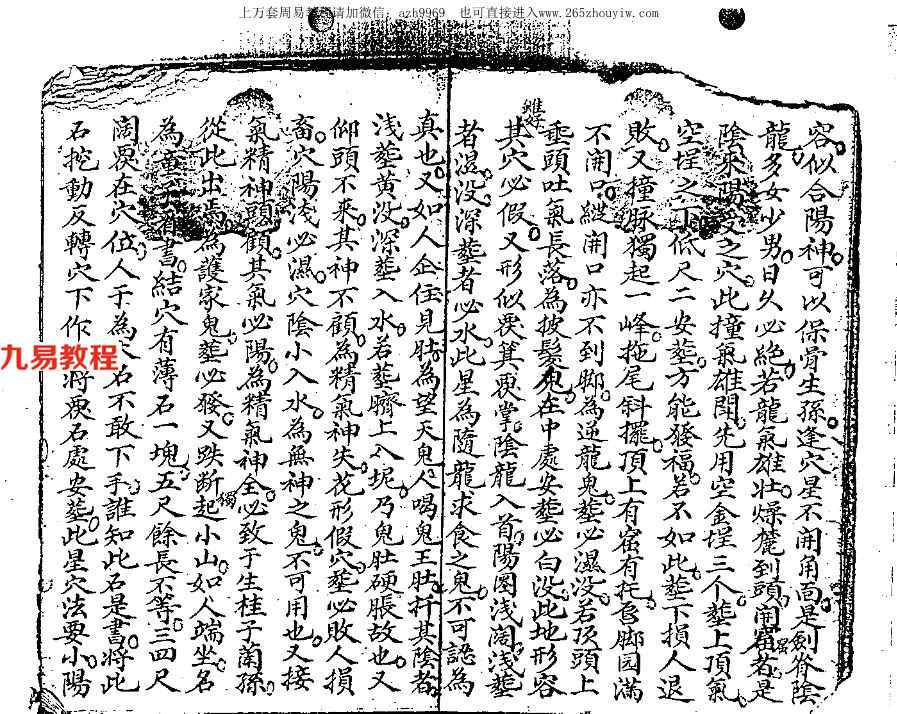 上万套周易资料请加微信：azh9969　也可直接进入www.265zhouyiw.com
容似合陽神可以保骨生孫逢穴星不開甬面是劍脊陰
龍多女少男日久必絶若龍氣雄壯燥麓到頭開窩者是
陰來陽受之穴此撞氣雄閗先用空金埕三个塟上頂氣
空埕之下低尺二安塟方能發福若不如此塟下損人退
敗又撞脉獨起一峰拖尾斜擺頂上有窟有托唇脚园滿
不開口縱開口亦不到脚為逆龍鬼塟必濕没若頂頭上
垂頭吐氣長落為披髮鬼在中處安塟必白没此地形容
其穴必假又形似畚箕夾掌陰龍入首陽圏浅闊浅塟
者濕没深塟者必水此星為隨龍求食之鬼不可認為
真也又如人企住見肚為望天鬼人喝鬼王肚扦其陰者
浅塟黄没深塟入水若塟臍上入坭乃鬼肚硬脹故也又
仰頭不來其神不顧為精氣神失花形假穴塟必敗人損
畜穴陽浅必濕穴陰小入水為無神之鬼不可用也又接
氣精神頭顧其氣必陽為精氣神全必致于生桂子蘭孫
從此出焉為護家鬼塟必發又跌断起獨小山如人端坐名
為童子看書結穴有薄石一塊五尺餘長不等三四尺
闊要在穴位人于為大石不敢下手誰知此石是書将此
石挖動反轉穴下作 将要石處安塟此星穴法要小陽
九易教程